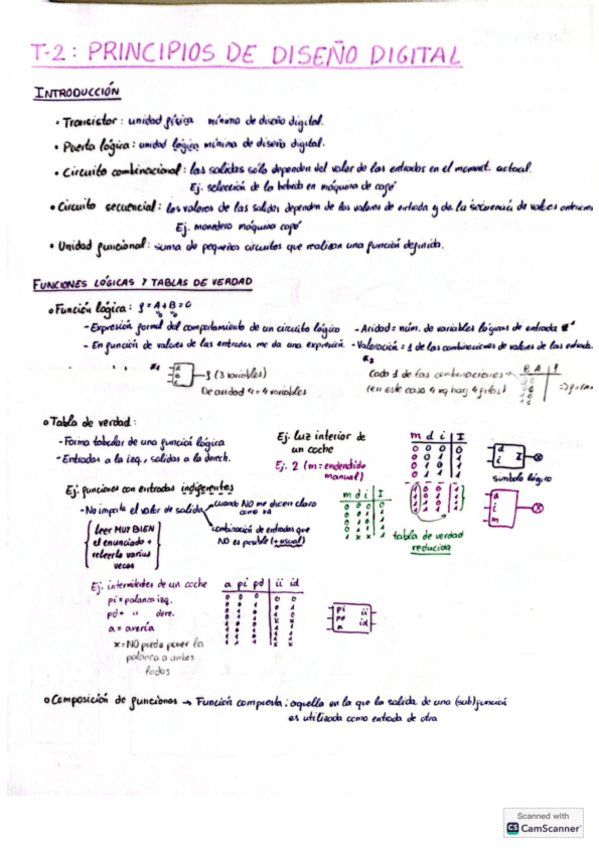 T-2: PRINCIPIOS DE DISEÑO DIGITAL
INTRODUCCIÓN
• Transistor: unidad física mínima de diseño digital.
• Puerta lógica: unidad lógica mínima de diseño digital.
• Circuito combinacional: las salidas sólo dependen del valor de las entradas en el moment. actual.
Ej. selección de la bebida en máquina de café
• Circuito secuencial: los valores de las salidas dependen de los valores de entrada y de la secuencia de valores
Ej. monedero máquina café
• Unidad funcional: suma de pequeños circuitos que realizan una función definida.
FUNCIONES LÓGICAS Y TABLAS DE VERDAD
• Función lógica: f = A + B = C
- Expresión formal del comportamiento de un circuito lógico - Aridad = núm. de variables lógicas de entrada *1
- En función de valores de las entradas me da una expresión. - Valoración = 1 de las combinaciones de valores de las entrada.
*1 A B C f (3 variables)
De aridad 4 = 4 variables
*2
Cada 1 de las combinaciones
(en este caso 4 hay 4 filas)
B A f
• Tabla de verdad:
- Forma tabular de una función lógica
- Entradas a la izq., salidas a la derech.
Ej. luz interior de
un coche
Ej. 2 (m = encendido
manual)
m d i I
d i I
símbolo lógico
d
i
m
m d i I
tabla de verdad
reducida
Ej. funciones con entradas indiferentes
- No importa el valor de salida
cuando NO me dicen claro
como va
combinación de entradas que
NO es posible (+ usual)
leer MUY BIEN
el enunciado +
releerlo varias
veces
Ej. intermitentes de un coche
pi = palanca izq.
pd = " dere.
a = avería
x = NO puedo poner la
palanca a ambos
lados
a pi pd ii id
pi ii
pd id
a
• Composición de funciones → Función compuesta: aquella en la que la salida de una (sub)función
es utilizada como entrada de otra
Scanned with
CS CamScanner